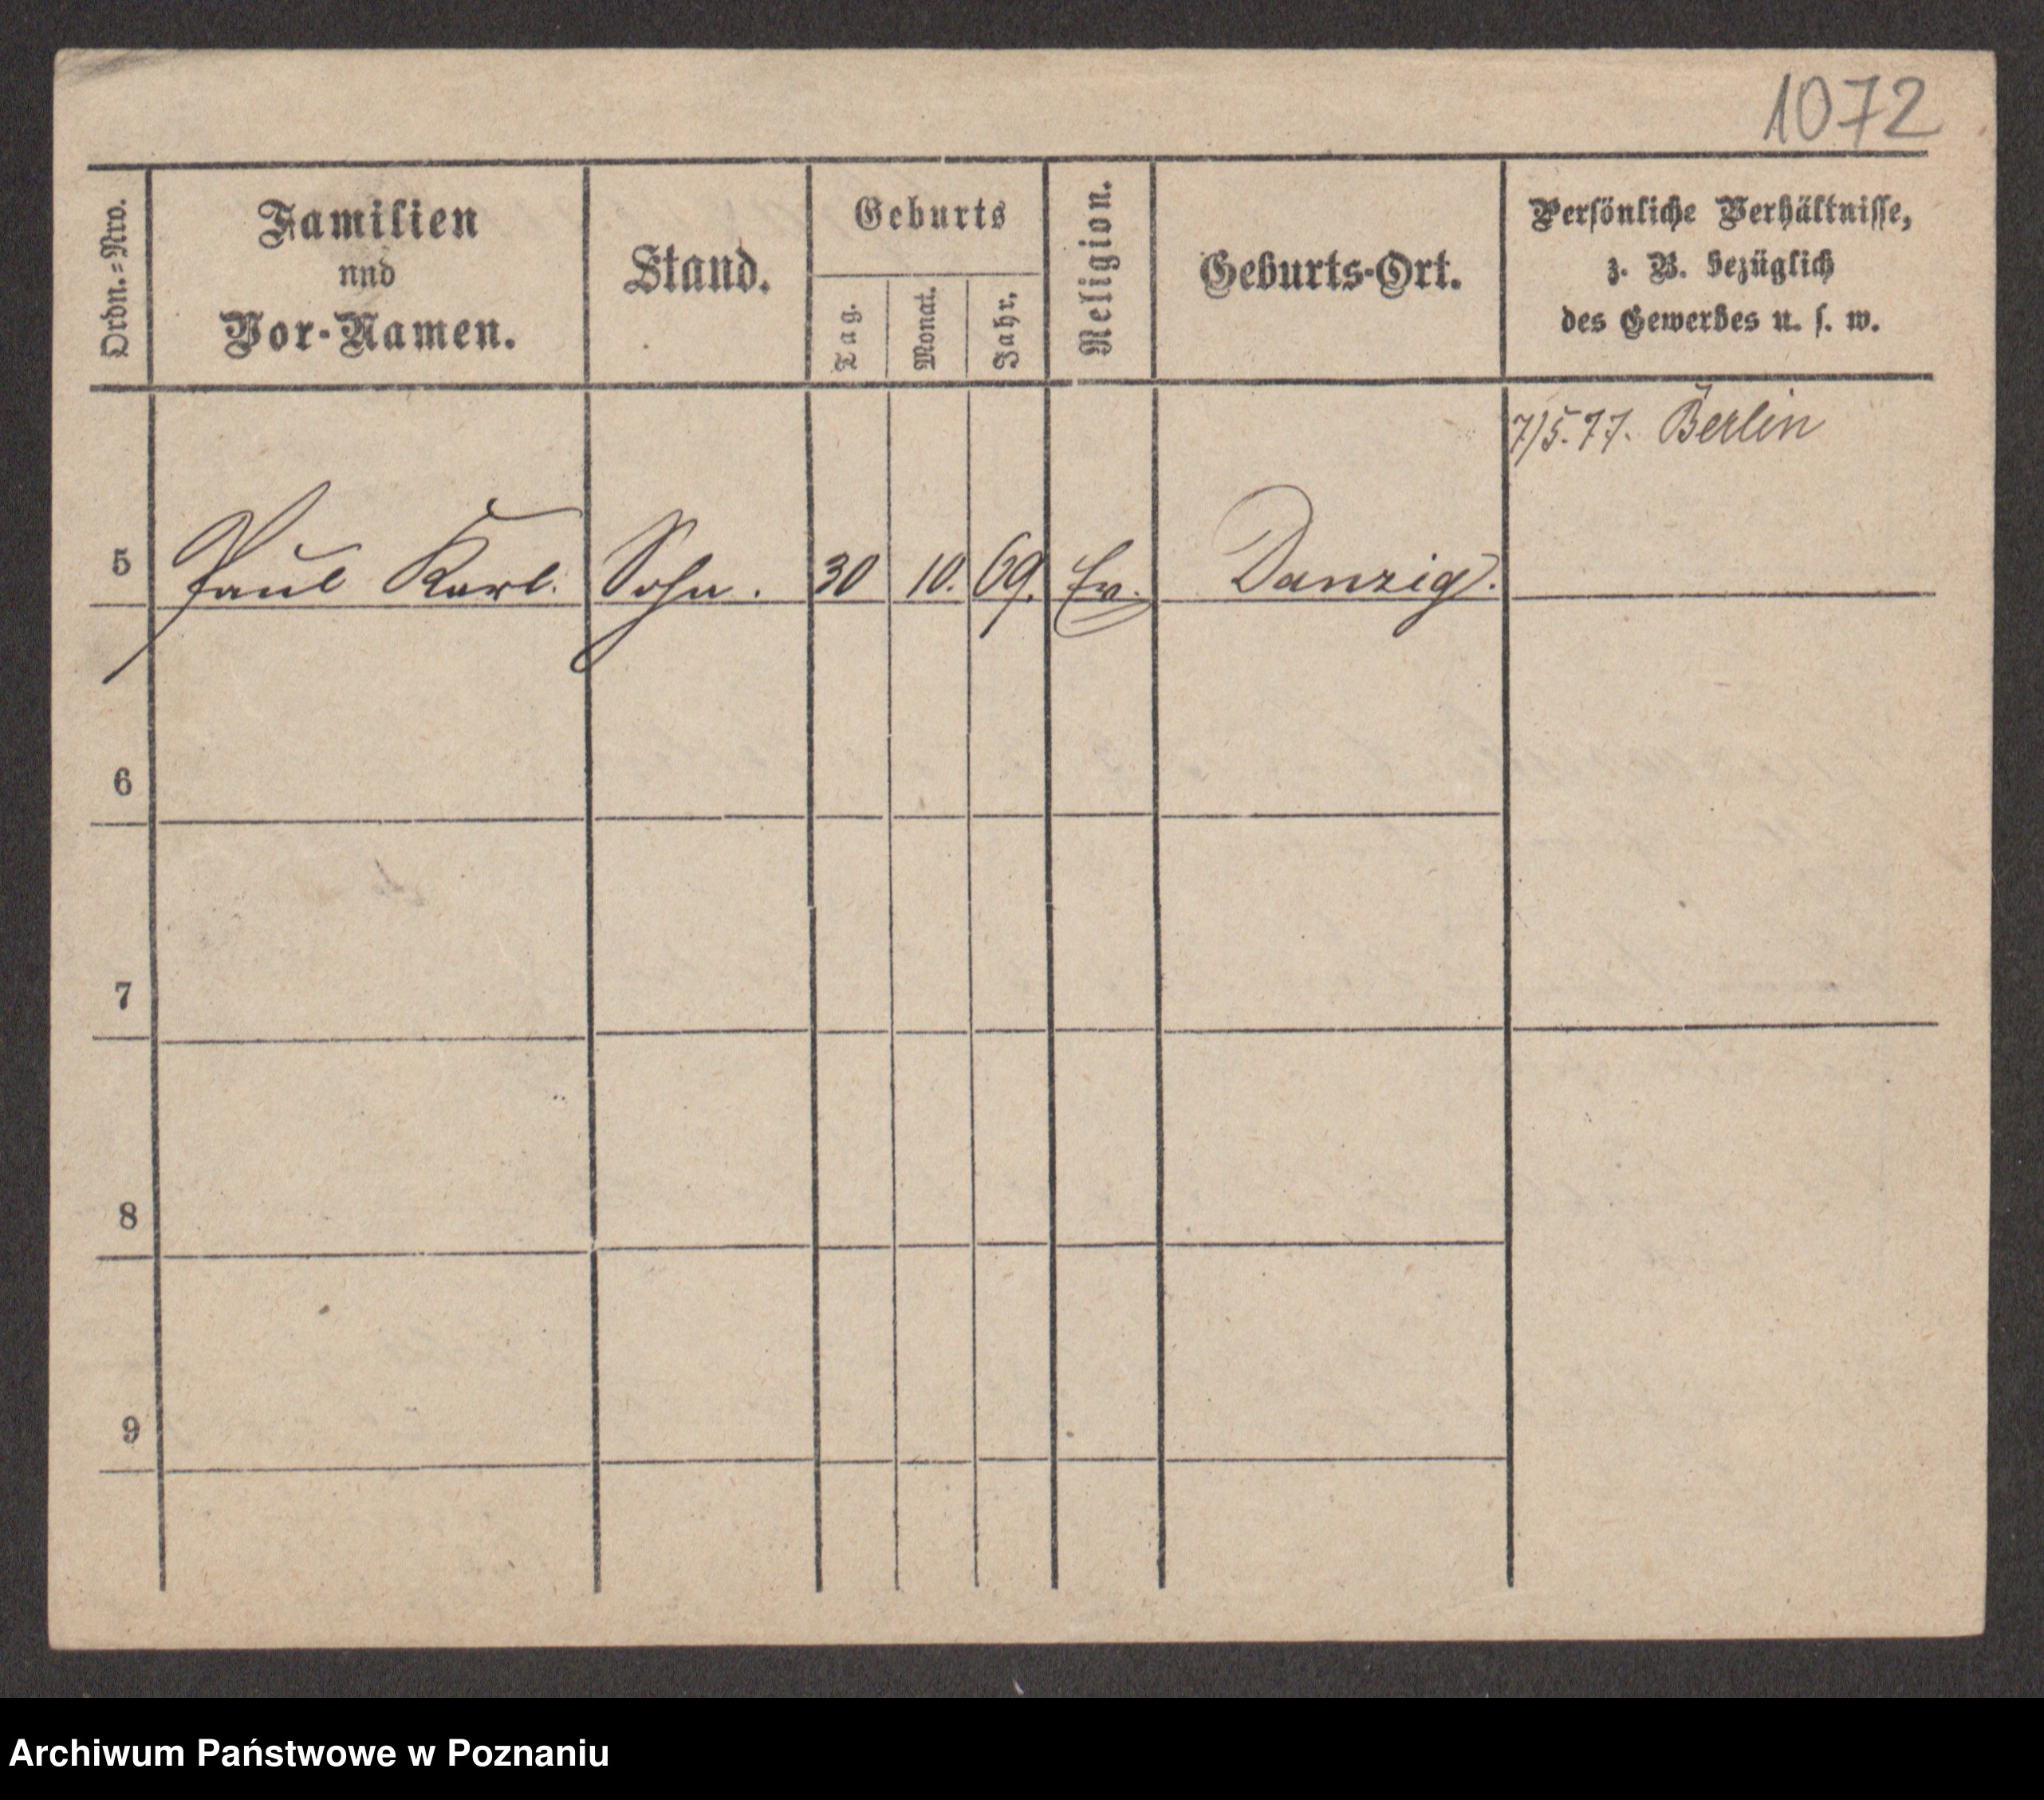 1072
Ordn.=Nro.
Familien
und
Vor-Namen.
Stand.
Geburts
Tag.
Monat.
Jahr.
Religion.
Geburts-Ort.
Persönliche Verhältnisse,
z. B. bezüglich
des Gewerbes u. s. w.
7/5.77. Berlin
5 Paul Karl. Sohn. 30 10. 69. Ev. Danzig.
6
7
8
9
Archiwum Państwowe w Poznaniu